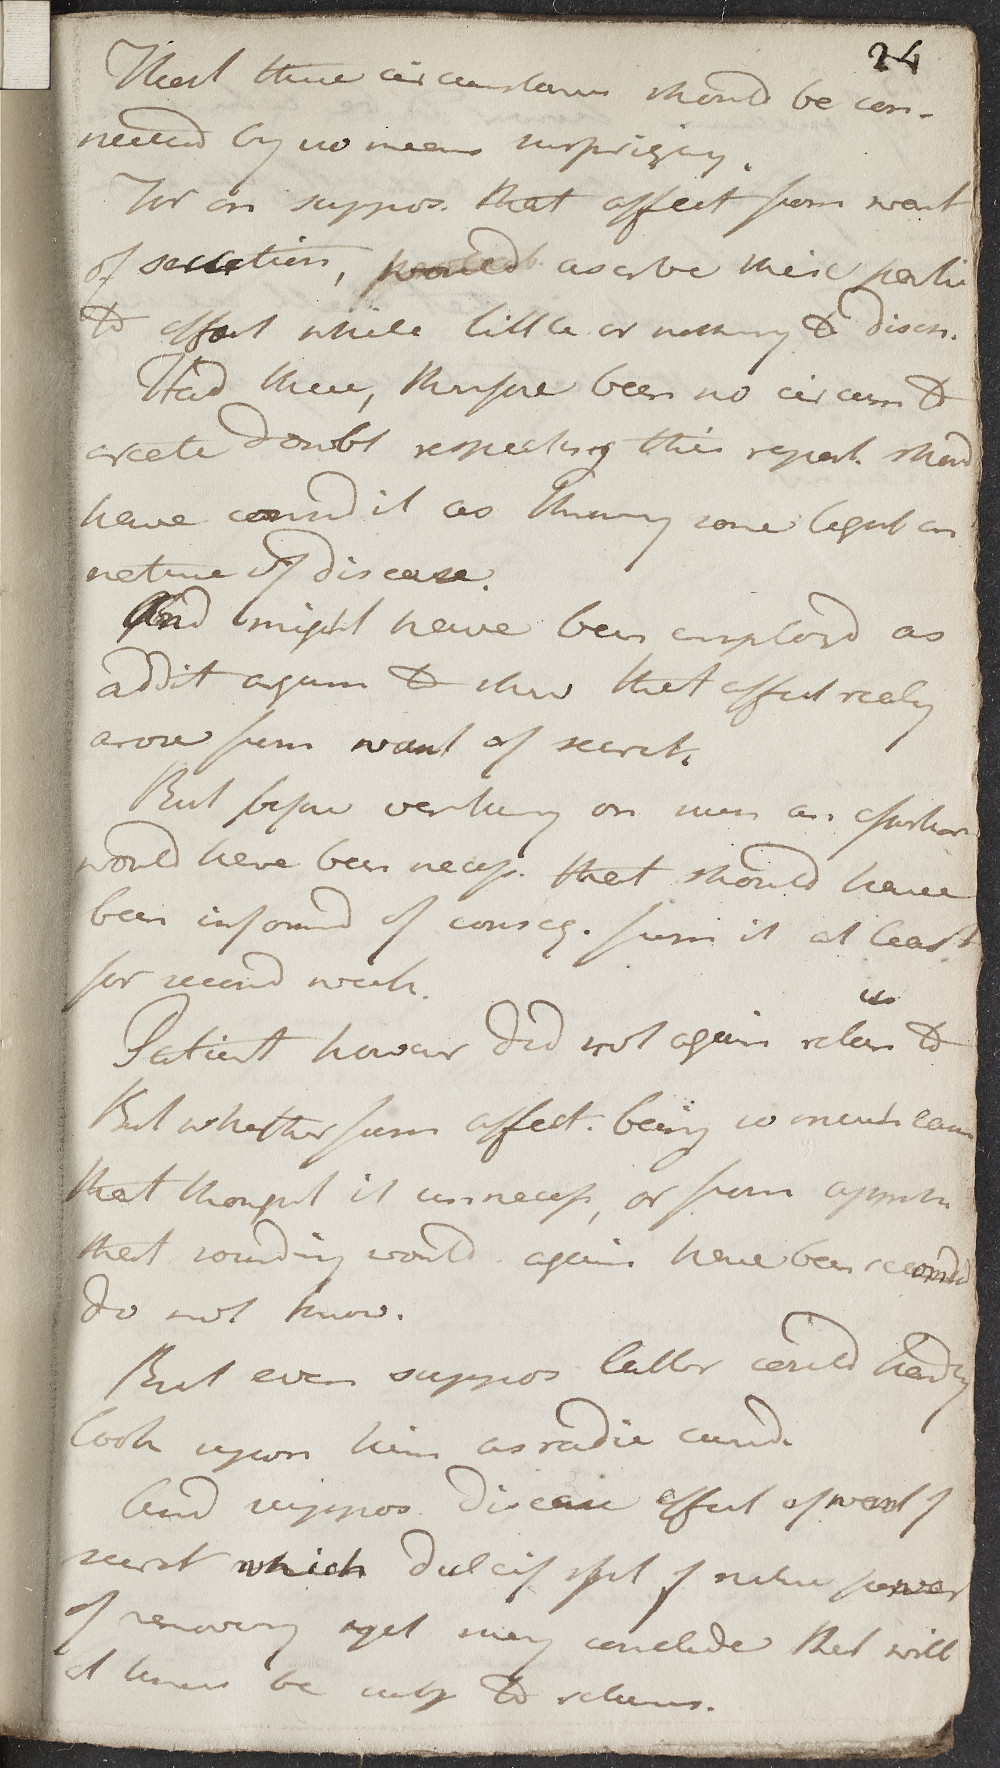 24
That these circumstances should be con-
nected by no means surprizing.
For on suppos. that affect from want
of secretion, would ascribe these partic
to effort while little or nothing to disch.
Had there, therefore been no circum to
create doubt respecting this report. shoud
have consid it as throwing some light on
nature of disease.
And might have been employd as
addit argum to shew that affect realy
arose from want of secret.
But before venturing on such an assertion
would have been necess. that should have
been informd of conseq. from it at least
for second week.
Patient however did not again return to
us
But whether from affect. being so much
that thought it unnecess, or from appreh
that sounding would again have been
do not know.
But even suppos latter could hardly
look upon him as radic curd.
And suppos disease effect of want of
secret which Dulcif spt of nitre power
of removing yet may conclude that will
at times be subj to returns.